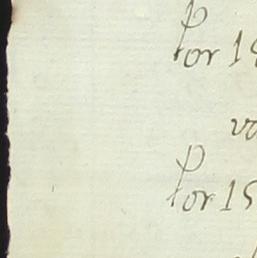 Por 1
vo
Por 15